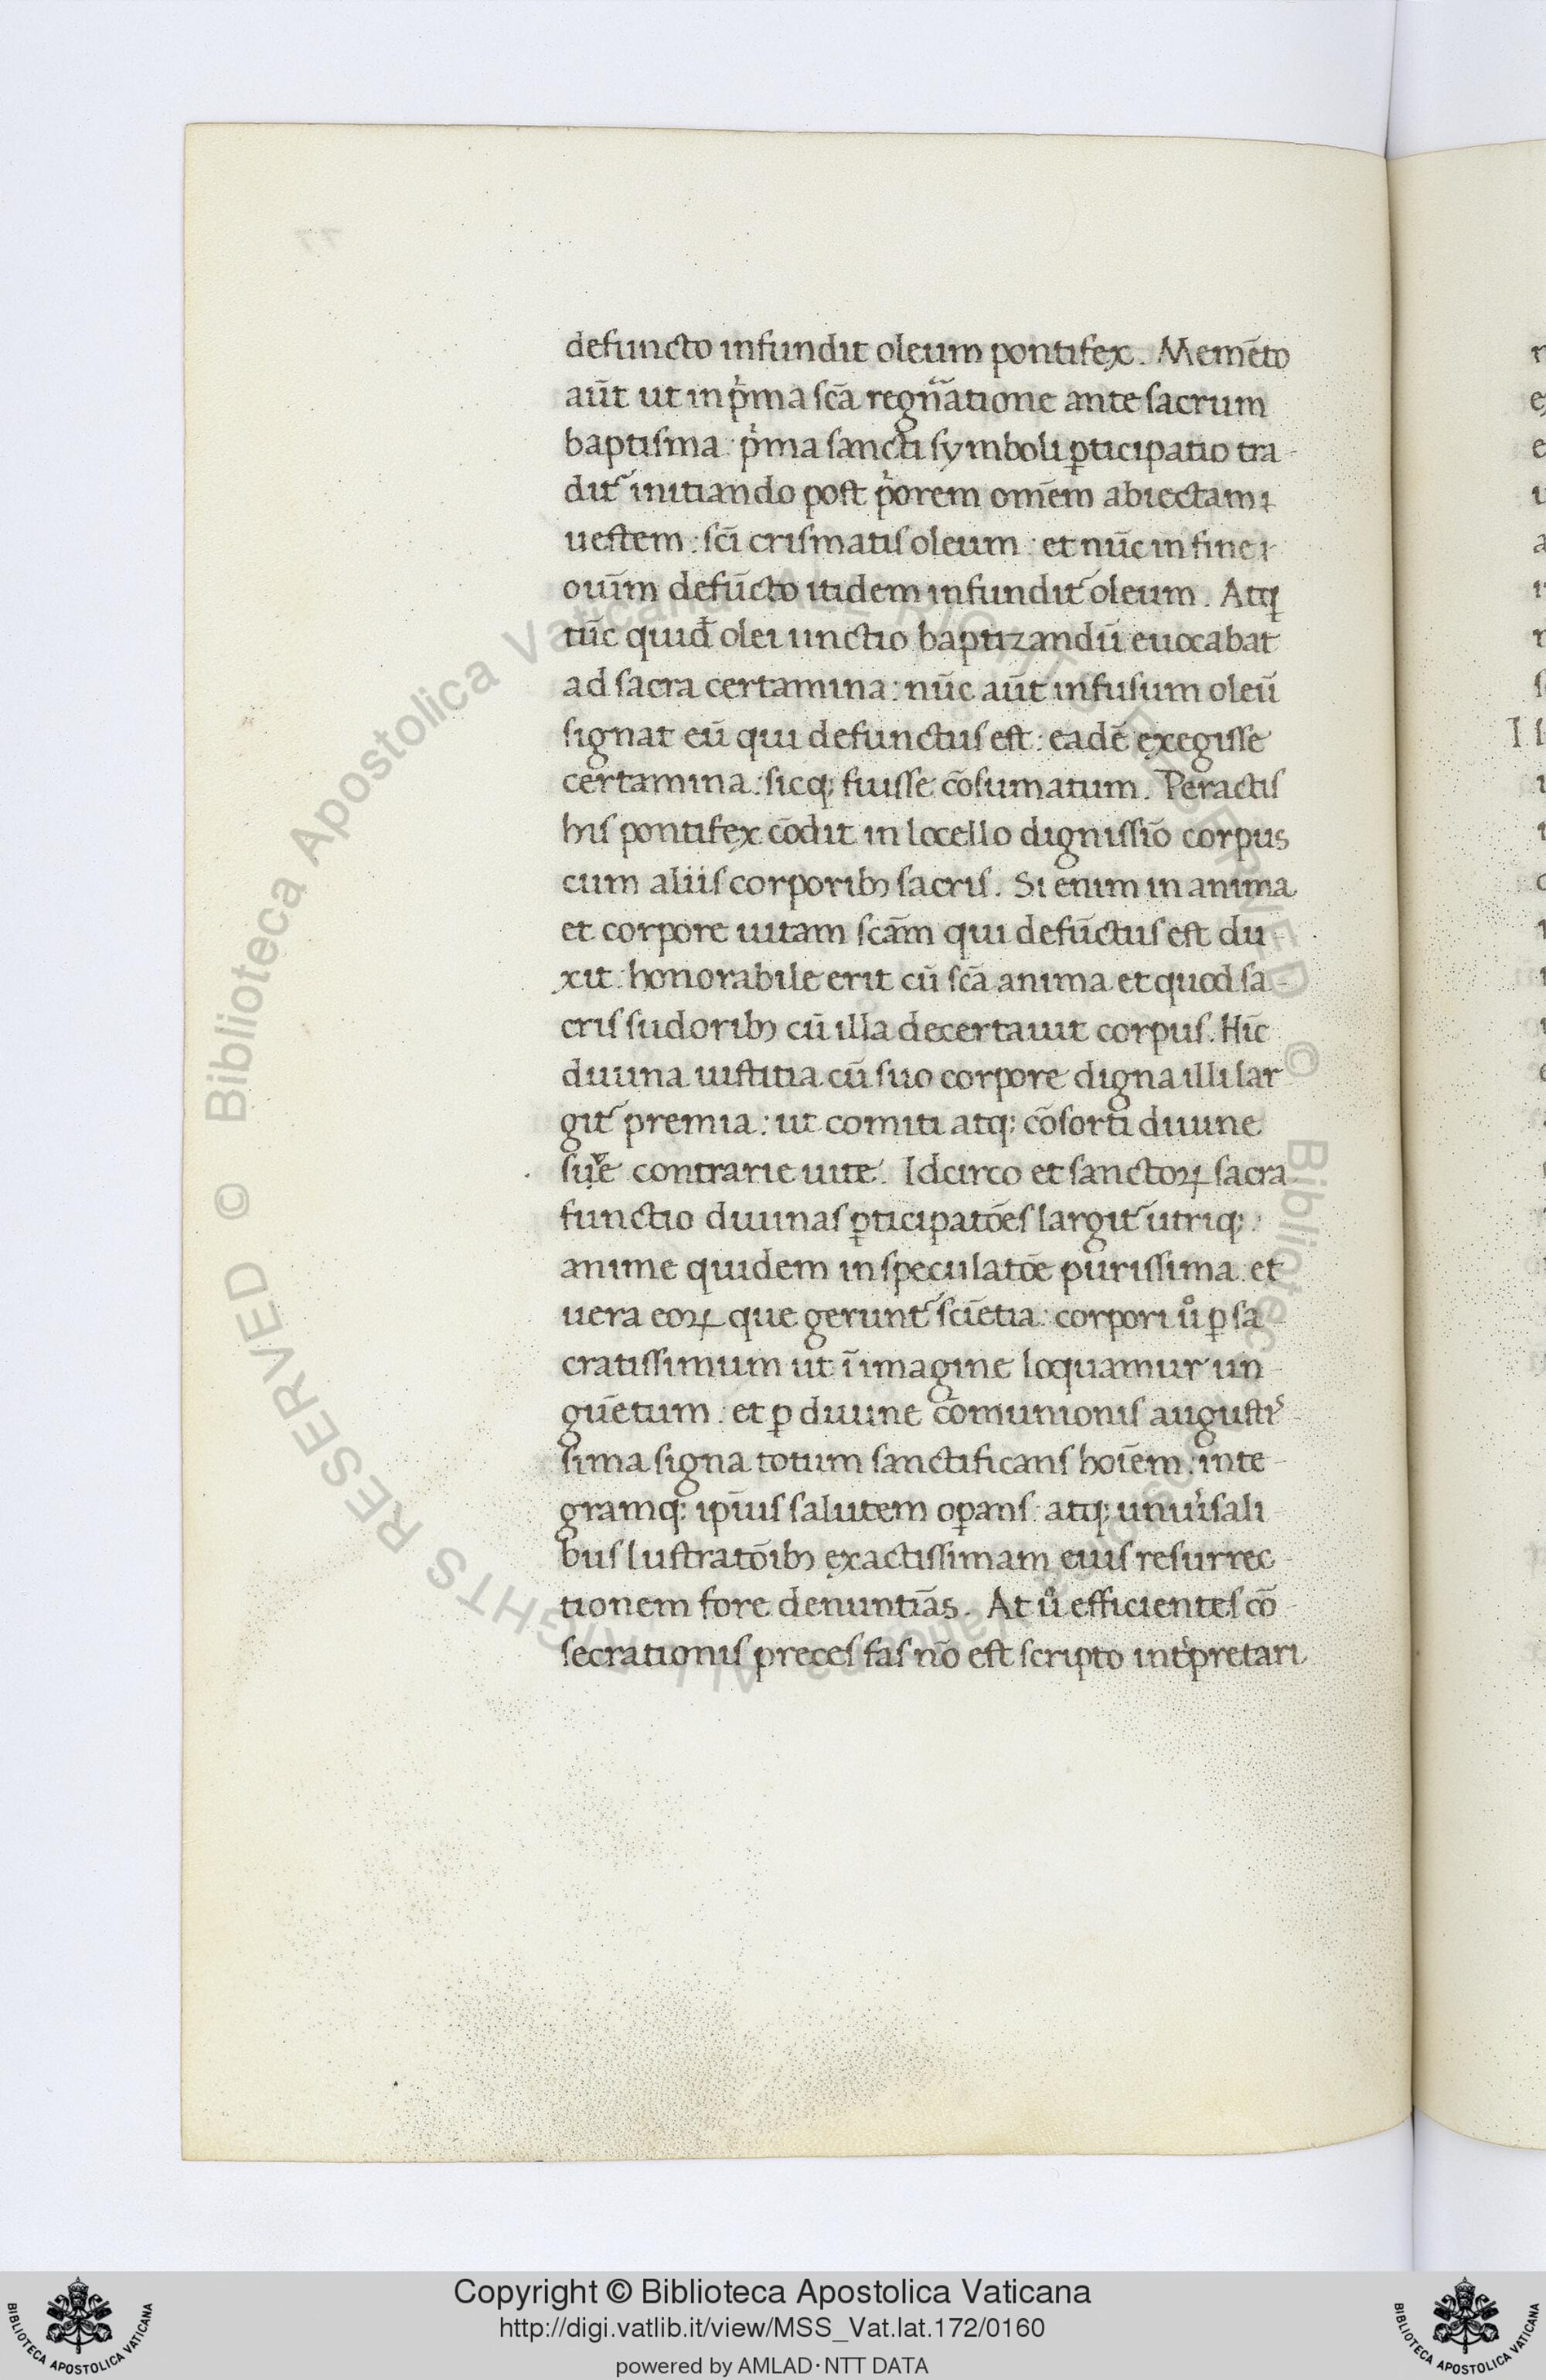 defuncto infundit oleum pontifex. Memēto
aūt ut in pͥma scā regn̄atione ante sacrum
baptisma: pͥma sancti symboli ꝑticipatio tra-
dit᷑ initiando post pͥorem omēm abiectam
uestem: scī crismatis oleum: et nūc in fine
ouīm defūcto itidem infundit᷑ oleum. Atq
tūc quid̄ olei unctio baptizandū euocabat
ad sacra certamina: nūc aūt infusum oleū
signat eū qui defunctus est: eadē exegisse
certamina: sicq; fuisse cōsumatum. Peractis
his pontifex cōdit in locello dignissīo corpus
cum aliis corporibꝫ sacris. Si enim in anima
et corpore uitam scām qui defūctus est du
xit: honorabile erit cū scā anima et quod sa-
cris sudoribꝫ cū illa decertauit corpus. Hīc
diuina iustitia cū suo corpore digna illi lar
git᷑ premia: ut comiti atq; cōsorti diuine
su\ͮe contrarie uite. Idcirco et sanctoꝝ sacra
functio diuinas ꝑticipatōes largit᷑ utriq;:
anime quidem in speculatōe purissima et
uera eoꝝ que gerunt᷑ sciētia: corpori uͦ ꝑ sa
cratissimum ut ī imagine loquamur un-
guētum: et ꝑ diuine cōmunionis augustis-
sima signa totum sanctificans hoīem: inte-
gramq; ipīus salutem oꝑans: atq; uniuͥsali
bus lustratōibꝫ exactissimam eius resurrec-
tionem fore denuntiās. At uͦ efficientes cō
secrationis preces fas nō est scripto intͥpretari
Copyright © Biblioteca Apostolica Vaticana
http://digi.vatlib.it/view/MSS_Vat.lat.172/0160
powered by AMLAD·NTT DATA
BIBLIOTECA APOSTOLICA VATICANA
BIBLIOTECA APOSTOLICA VATICANA